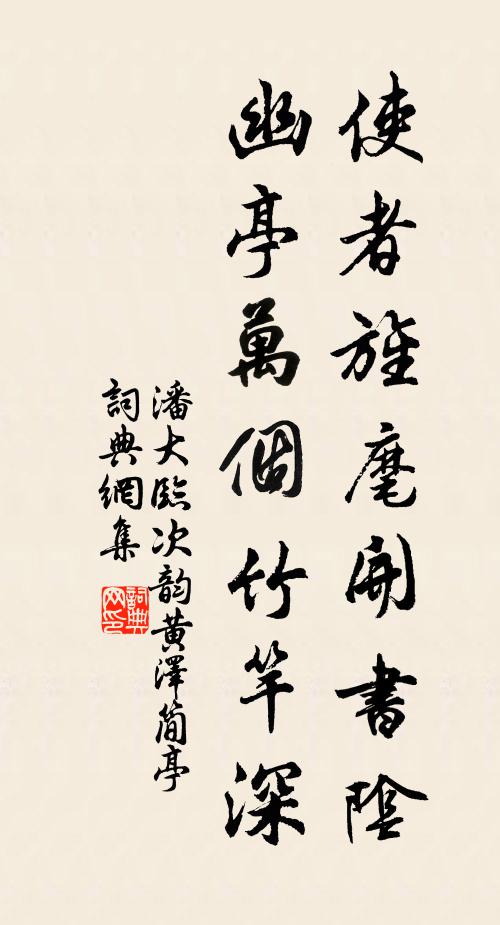 使者旌麾開書陰
幽亭萬個竹竿深
潘大臨次韵黃澤簡亭
詞典網集
詞典网印